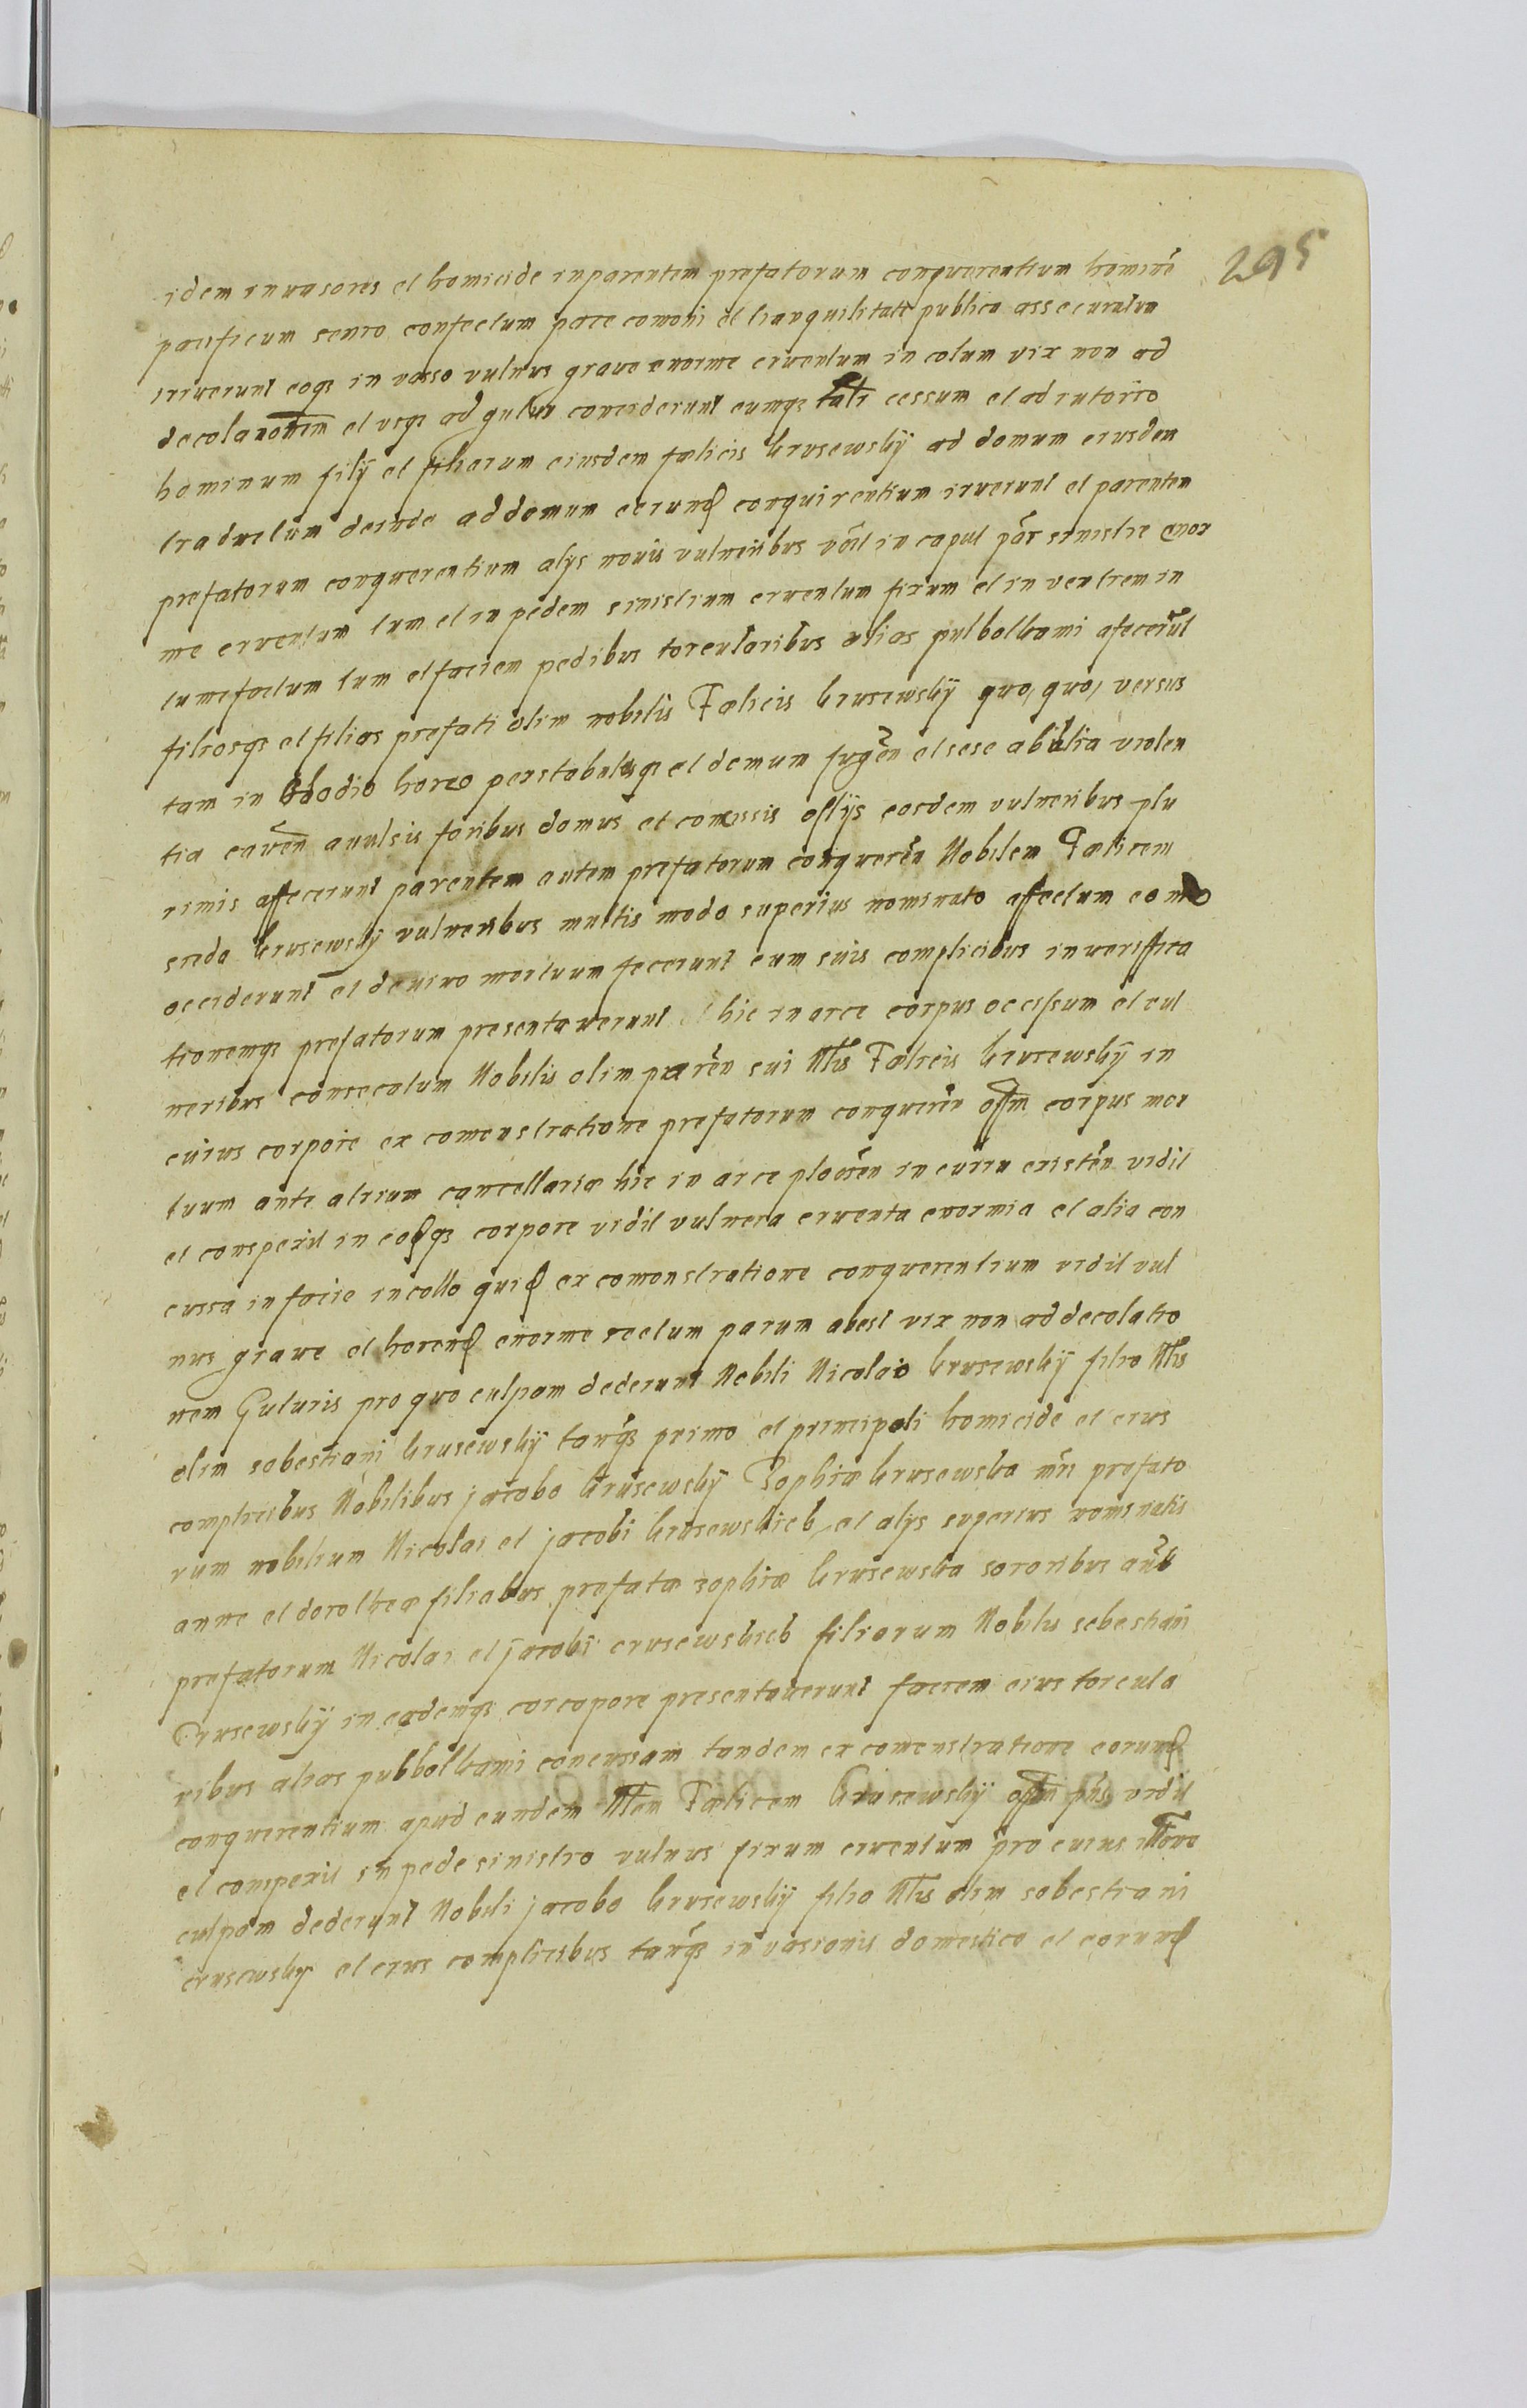 295
idem inuasores et homicide in parentem prefatorum conquerentium hominē
pacificum senio confectum pace comoni et tranquilitate publica assecuratum
irruerunt eoqз in vasso vulnus graue enorme cruentum in colum vix non ad
decolationem et vsqз ad gutur conciderunt eumqз tali cessum et adiutorio
hominum filÿ et filiarum eiusdem fœlicis Grusewskÿ ad domum eiusdem
traductum deinde ad domum eorund conquirentium iruerunt et parentem
prefatorum conquerentium alÿs nouis vulneribus in caput sinistre enor
me cruentum tum et in pedem sinistrum cruentum fixum et in ventrem in
tumefactum tum et faciem pedibus torcularibus alias pulbolkami afecerūt
filiosqз et filias prefati olim nobilis Fœlicis Grusewskÿ quo, quo, versus
tam in horeo per stabulaqз et domum fugēn et sese ab violen
tia cauēn auulsis foribus domus et comissis ostÿs eosdem vulneribus plu
rimis affecerunt parentem autem prefatorum conquerēn Nobilem Fœlicem
Grusewskÿ vulneribus multis modo superius nominato affectum
occiderunt et de viuo mortuum fecerunt cum suis complicibus in veriffica
tionemqз prefatorum presentauerunt hic in arce corpus occissum et vul
neribus consecatum Nobilis olim parēn sui Nlis Fœlicis Grusewskÿ in
cuius corpore ex comonstratione prefatorum conquerēn corpus mor
tuum ante atrium cancellariæ hic in arce plocēn in curru existēn vidit
et conspexit in eodqз corpore vidit vulnera cruenta enormia et alia con
cussa in facie in collo quid ex comonstratione conquerentium vidit vul
nus graue et horend enorme sectum parum abest vix non ad decolatio
nem Guturis pro quo culpam dederunt Nobili Nicolao Grusewskÿ filio Nlis
olim sebestiani Grusewskÿ tanqз primo et principali homicide et eius
complicibus Nobilibus jacobo Grusewskÿ Zophiæ Grusewska mris prefato
rum nobilium Nicolai et jacobi Grusewskich et alÿs superius nominatis
anne et dorotheæ filiabus prefatæ zophiæ Grusewska sororibus aūt
prefatorum Nicolai et jacobi Grusewskich filiorum Nobilis sebestiani
Grusewskÿ in eademqз corcapore presentauerunt faciem eius torcula
ribus alias pulbolkami concussam tandem ex comonstratione eorund
conquerentium apud eundem Nlem Fœlicem Grusewskÿ vidit
et conspexit in pede sinistro vulnus fixum cruentum pro cuius
culpam dederunt Nobili jacobo Grusewskÿ filio Nlis olim sebestiani
Grusewskÿ et eius complicibus tanqз inuasionis domestico et eorund